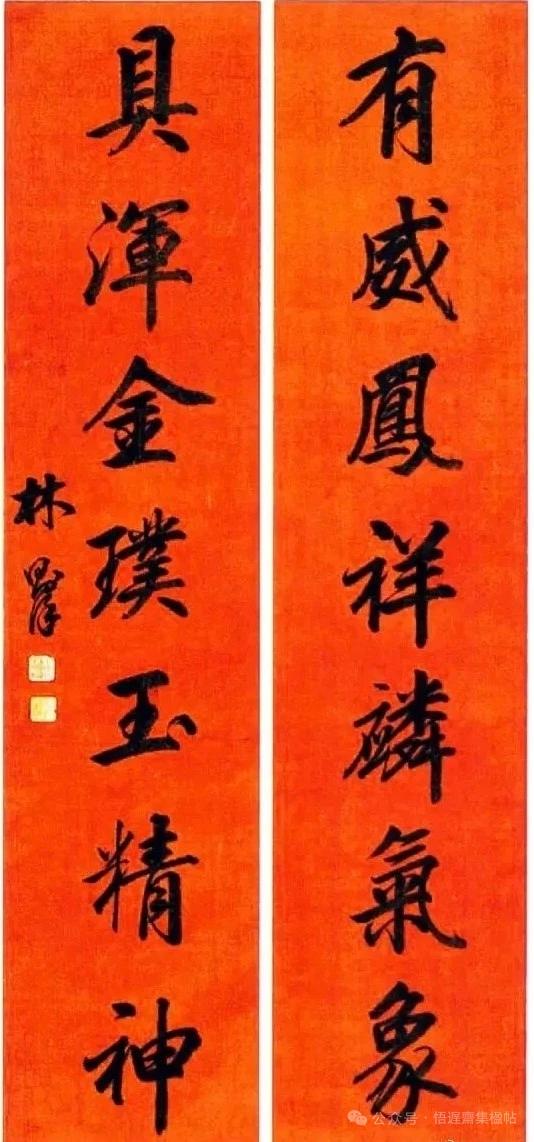 有威鳳祥麟氣象
具渾金璞玉精神
林則徐
公众号·悟遲齋集楹帖